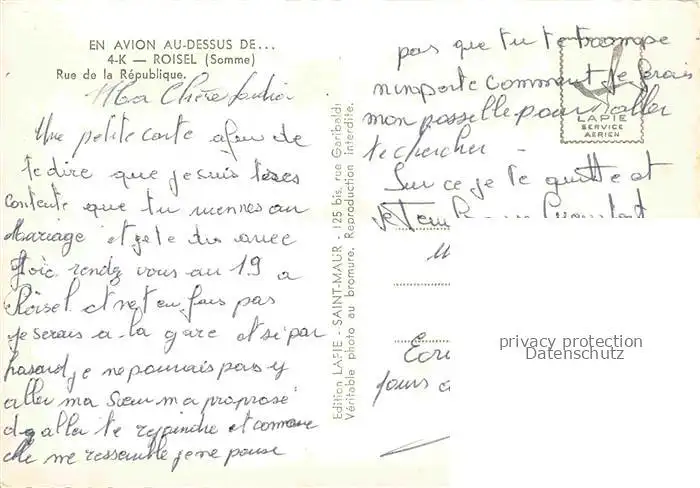 EN AVION AU-DESSUS DE...
4-K — ROISEL (Somme)
Rue de la République.
Ma Chère
Une petite carte afin de
te dire que je suis tères
contente que tu viennes au
Mariage et je te dis avec
joie rendz vous au 19 a
Roisel et ne t en fais pas
je serais a la gare et si par
hasard je ne pouvais pas y
aller ma Sœur m a proposé
d y aller te rejoindre et comme
elle me ressemble je ne pense
Edition LAPIE - SAINT-MAUR - 125 bis, rue Garibaldi
Véritable photo au bromure. Reproduction interdite.
pas que tu te trompe
n importe comment je ferais
mon possible pour aller
te chercher -
LAPIE
SERVICE
AERIEN
Sur ce je te quitte et
Ecri
jours
privacy protection
Datenschutz